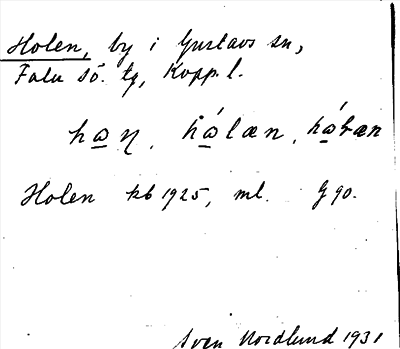 Holen, by i Gustavs sn,
Falu sö. tg, Kopp. l.
hａη, hálæn, hátæn
Holen kb 1925, ml. G 90.
Sven Nordlund 1931